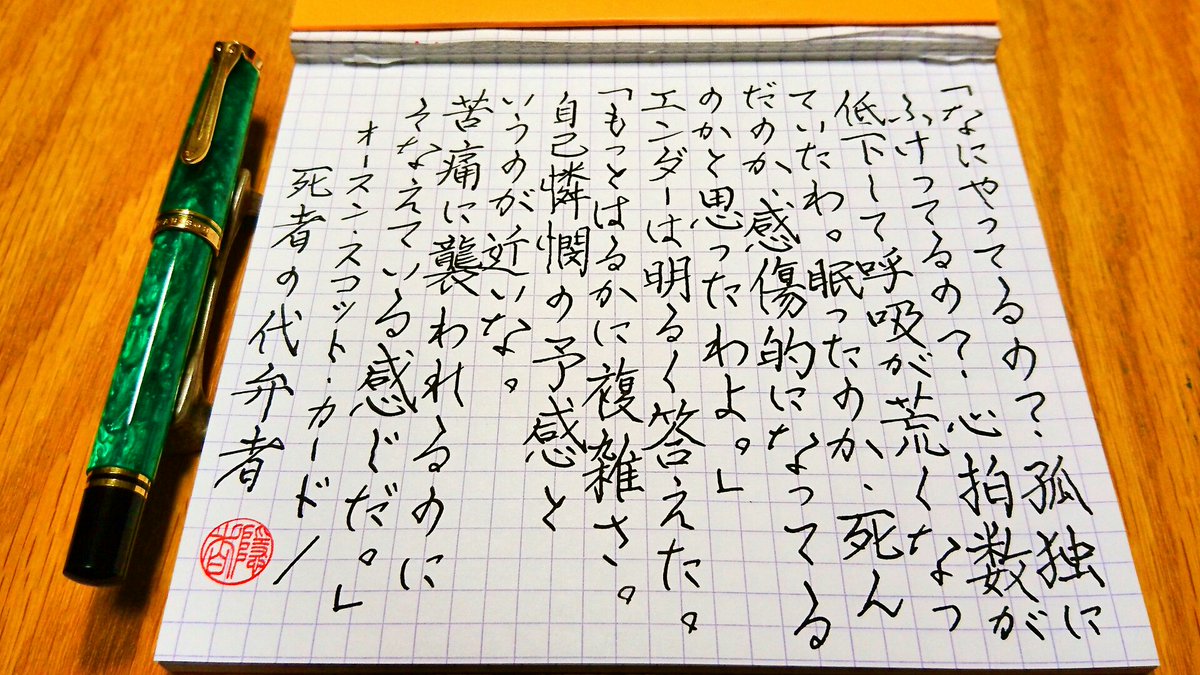 「なにやってるの？孤独に
ふけってるの？心拍数が
低下して呼吸が荒くなっ
ていたわ。眠ったのか、死ん
だのか、感傷的になってる
のかと思ったわよ。」
エンダーは明るく答えた。
「もっとはるかに複雑さ。
自己憐憫の予感と
いうのが近いな。
苦痛に襲われるのに
そなえている感じだ。」
オースン・スコット・カード／
死者の代弁者